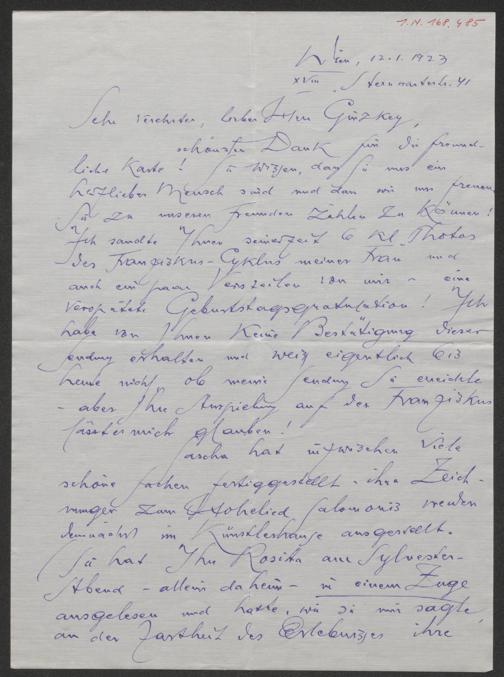 I.N. 168.485
Wien, 12.1.1923
XVIII Sternwartestr. 41
Sehr verehrter, lieber Herr Ginzkey,
schönsten Dank für die freund-
liche Karte! Sie wissen, dass Sie uns ein
herzlieber Mensch sind und dass wir uns freuen
Sie zu unseren Freunden zählen zu können!
Ich sandte Ihnen seinerzeit 6 kl. Photos
des Franziskus-Cyklus meiner Frau und
auch ein paar Verszeilen von mir - eine
verspätete Geburtstagsgratulation! Ich
habe von Ihnen keine Bestätigung dieser
Sendung erhalten und weiß eigentlich bis
heute nicht, ob meine Sendung Sie erreichte
- aber Ihre Anspielung auf den Franziskus
lässt mich glauben!
Sascha hat inzwischen viele
schöne Sachen fertiggestellt - ihre Zeich-
nungen zum Hohelied Salomonis werden
demnächst im Künstlerhause ausgestellt.
Sie hat Ihre Rosita am Sylvester-
Abend - allein daheim - in einem Zuge
ausgelesen und hatte, wie sie mir sagte,
an der Zartheit des Erlebnisses ihre